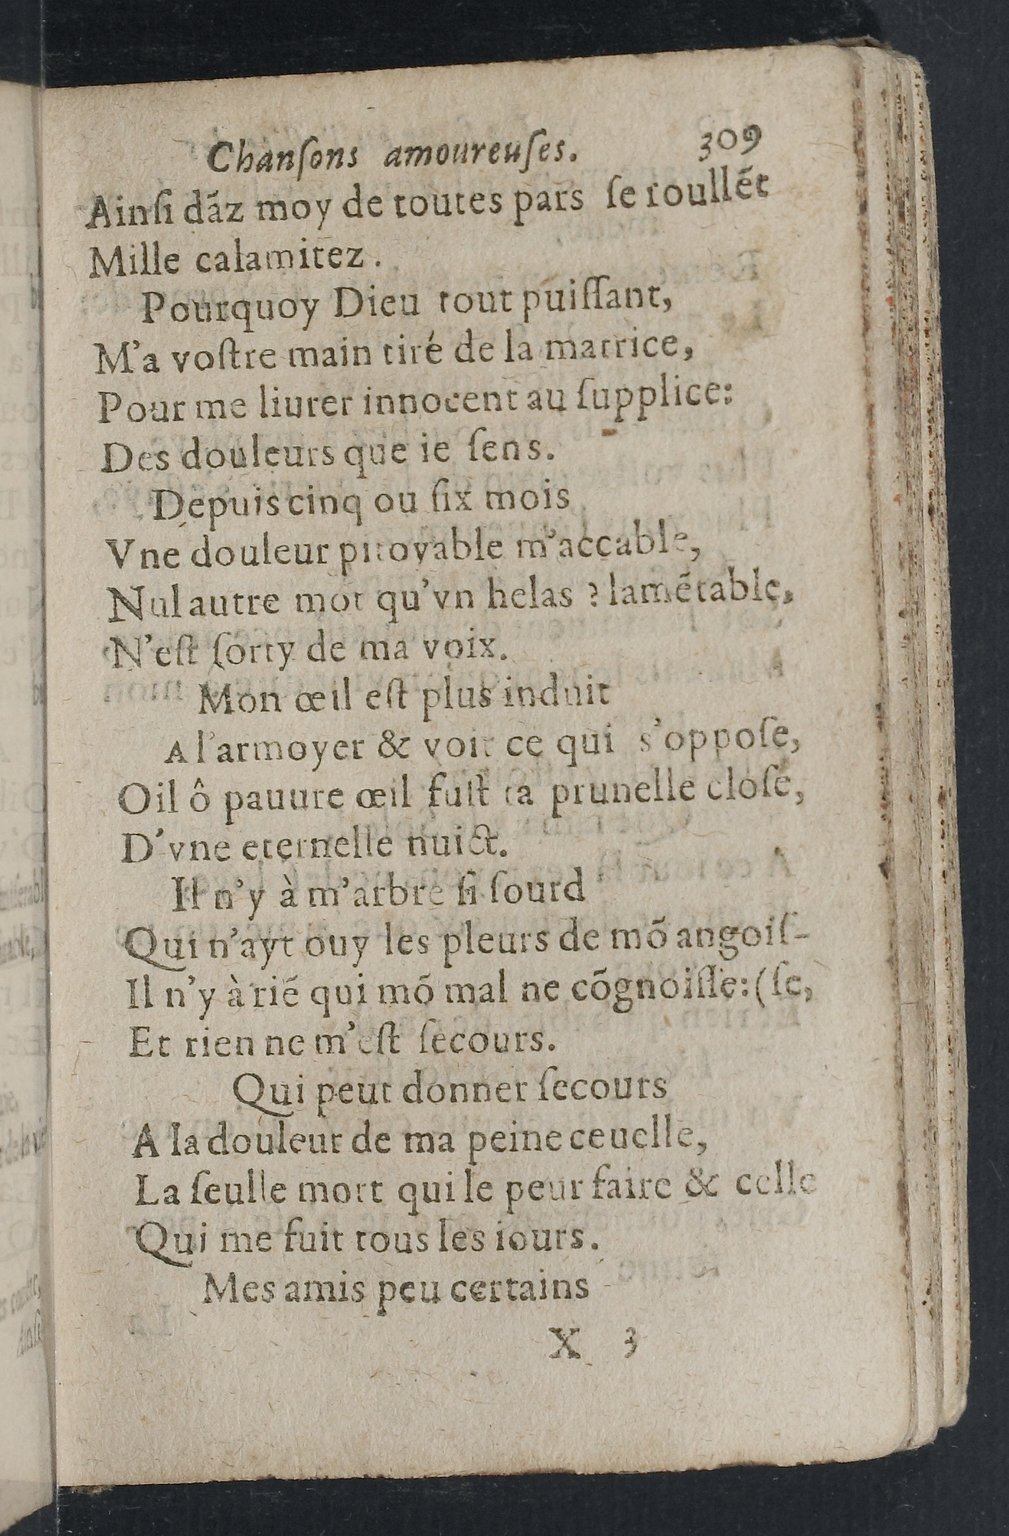 Chanſons amoureuſes. 309
Ainſi dãz moy de toutes pars ſe roullẽt
Mille calamitez.
Pourquoy Dieu tout puiſſant,
M'a voſtre main tiré de la matrice,
Pour me liurer innocent au ſupplice:
Des douleurs que ie ſens.
Depuis cinq ou ſix mois
Vne douleur pitoyable m'accable,
Nul autre mot qu'vn helas ? lamẽtable,
N'eſt ſorty de ma voix.
Mon œil eſt plus induit
A l'armoyer & voir ce qui s'oppoſe,
Oil ô pauure œil fuſt ta prunelle cloſe,
D'vne eternelle nuict.
Il n'y à m'arbre ſi ſourd
Qui n'ayt ouy les pleurs de mõ angoiſ-
Il n'y à riẽ qui mõ mal ne cõgnoiſſe: (ſe,
Et rien ne m'eſt ſecours.
Qui peut donner ſecours
A la douleur de ma peine ceuelle,
La ſeulle mort qui le peur faire & celle
Qui me fuit tous les iours.
Mes amis peu certains
X 3